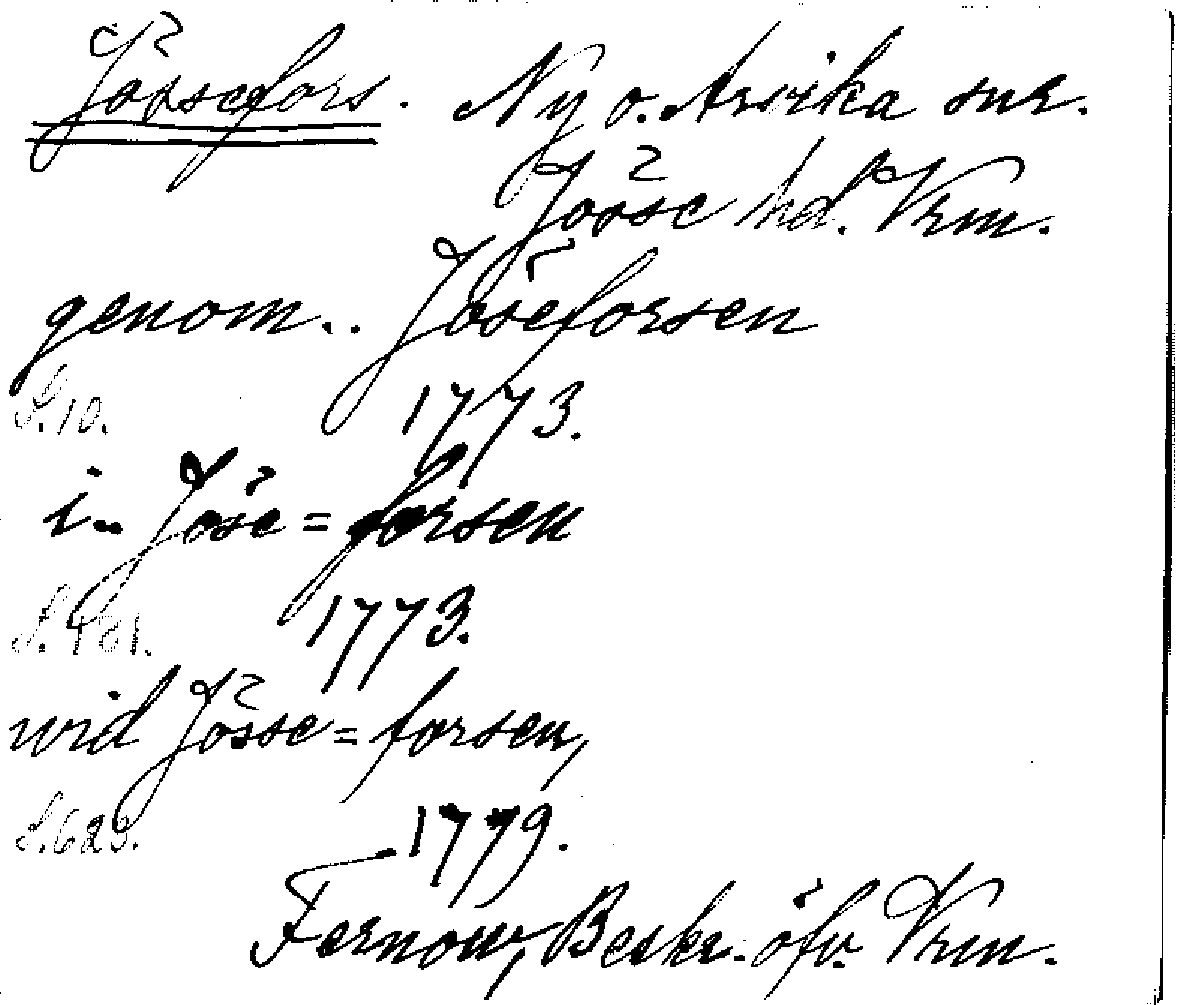 Jössefors. Ny o. Arvika snr.
Jösse hd. Vrm.
genom.. Jöseforsen
S. 10. 1773.
i.. Jöse=forsen
1773.
wid Jösse=forsen,
S. 623. 1779.
Fernow, Beskr. öfv. Vrm.